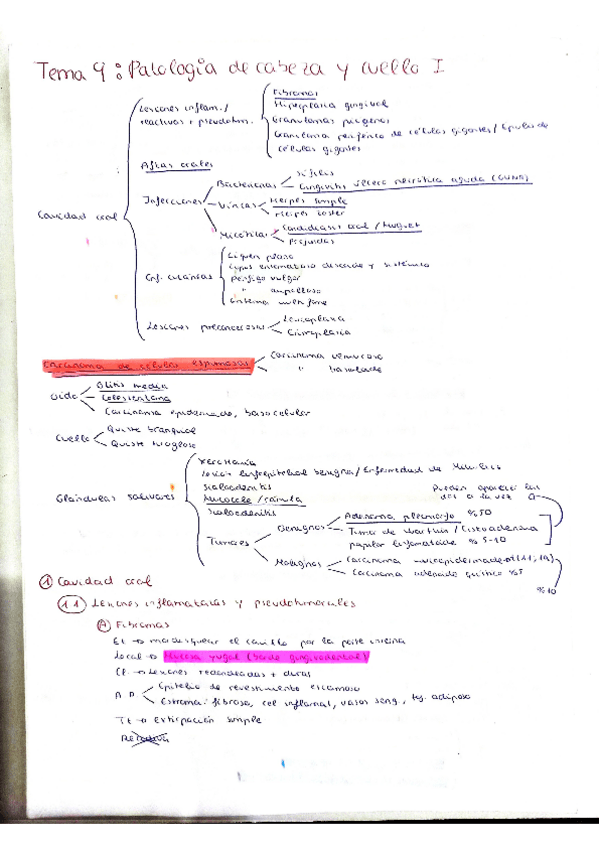 Tema 9: Patología de cabeza y cuello I
Cavidad oral
Lesiones inflam./
reactivas + pseudotum.
Fibromas
Hiperplasia gingival
Granulomas piógenos
Granuloma periférico de células gigantes / Epulis de
células gigantes
Aftas orales
Infecciones
Bacterianas
Sífilis
Gingivitis úlcero necrótica aguda (GUNA)
Víricas
Herpes simple
Herpes zoster
Micóticas
Candidiasis oral / Muguet
Profundas
Enf. cutáneas
Liquen plano
Lupus eritematoso discoide y sistémico
Pénfigo vulgar
" ampolloso
Eritema multiforme
Lesiones precancerosas
Leucoplasia
Eritroplasia
Carcinoma de células espinosas
Carcinoma verrucoso
" basaloide
Oído
Otitis media
Colesteatoma
Carcinoma epidermoide, basocelular
Cuello
Quiste branquial
Quiste tirogloso
Glándulas salivares
Xerostomía
Lesión linfoepitelial benigna / Enfermedad de Mikulicz
Sialoadenitis
Mucocele / ránula
Sialoadenitis
Tumores
Benignos
Adenoma pleomorfo %50
Tumor de Warthin / Cistoadenoma
papilar linfomatoide %5-10
Pueden aparecer los
dos a la vez
Malignos
Carcinoma mucoepidermoide
Carcinoma adenoide quístico %5
%10
1 Cavidad oral
1.1 Lesiones inflamatorias y pseudotumorales
A Fibromas
Et → mordisquear el carrillo por la parte interna
Local → Mucosa yugal (borde gingivodental)
Cl → Lesiones redondeadas + duras
A.P.
Epitelio de revestimiento escamoso
Estroma: fibrosa, cel inflamat, vasos sang., tej. adiposo
Tt → extirpación simple